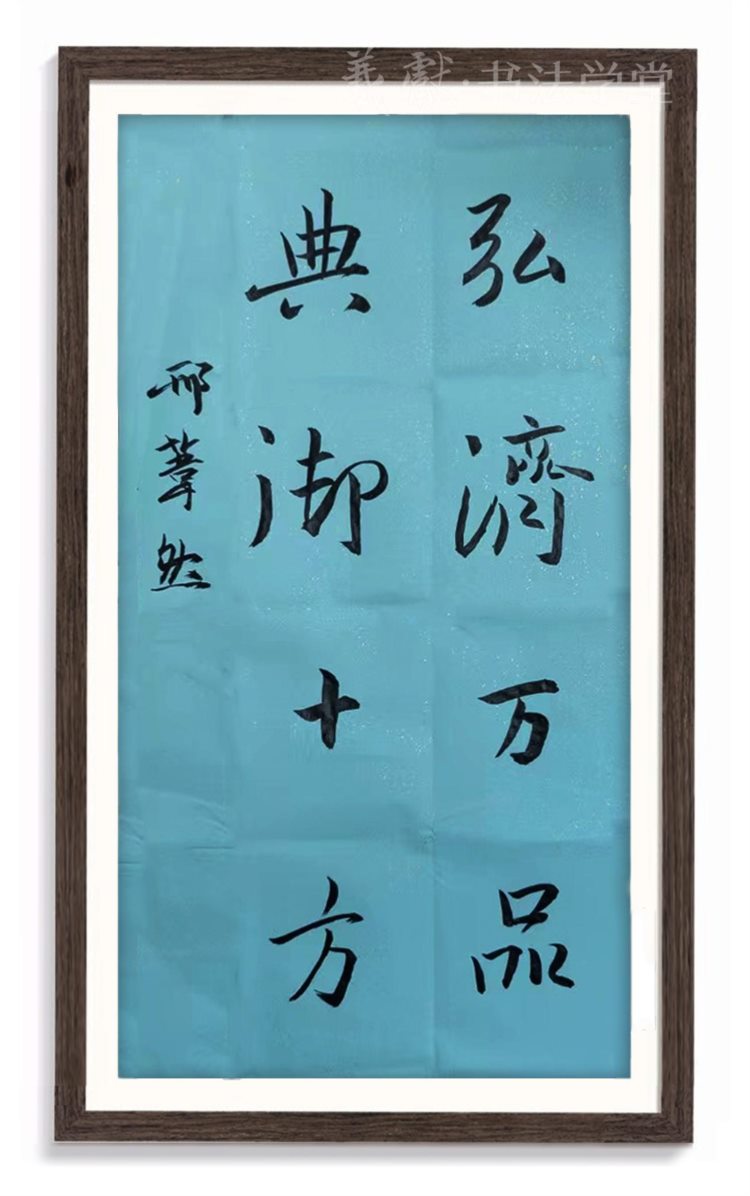 羲獻·书法学堂
弘濟万品
典御十方
邢葦然